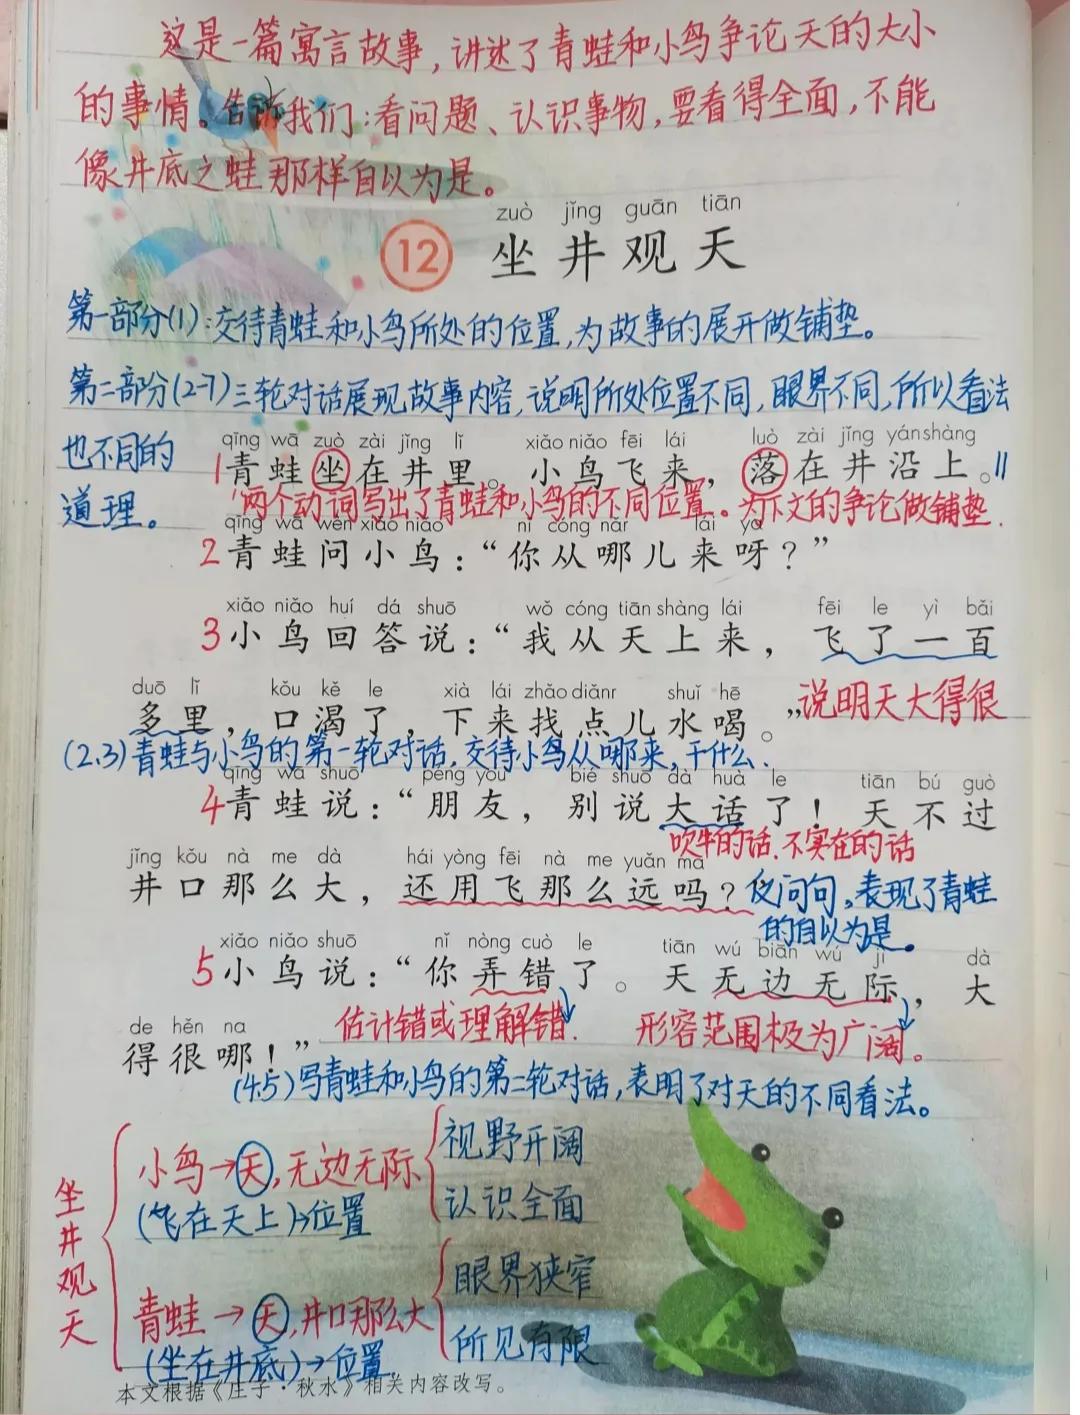 这是一篇寓言故事，讲述了青蛙和小鸟争论天的大小
的事情。告诉我们：看问题、认识事物，要看得全面，不能
像井底之蛙那样自以为是。
zuò jǐng guān tiān
12 坐井观天
第一部分(1)：交待青蛙和小鸟所处的位置，为故事的展开做铺垫。
第二部分(2-7)三轮对话展现故事内容，说明所处位置不同，眼界不同，所以看法
也不同的
道理。
qīng wā zuò zài jǐng lǐ xiǎo niǎo fēi lái luò zài jǐng yán shàng
1青蛙坐在井里。小鸟飞来，落在井沿上。‖
两个动词写出了青蛙和小鸟的不同位置。为下文的争论做铺垫.
qīng wā wèn xiǎo niǎo nǐ cóng nǎr lái ya
2青蛙问小鸟：“你从哪儿来呀？”
xiǎo niǎo huí dá shuō wǒ cóng tiān shàng lái fēi le yì bǎi
3小鸟回答说：“我从天上来，飞了一百
duō lǐ kǒu kě le xià lái zhǎo diǎnr shuǐ hē
多里，口渴了，下来找点儿水喝。” 说明天大得很
(2.3)青蛙与小鸟的第一轮对话，交待小鸟从哪来，干什么.
qīng wā shuō péng you bié shuō dà huà le tiān bú guò
4青蛙说：“朋友，别说大话了！天不过
吹牛的话.不实在的话
jǐng kǒu nà me dà hái yòng fēi nà me yuǎn ma
井口那么大，还用飞那么远吗？ 反问句，表现了青蛙
的自以为是。
xiǎo niǎo shuō nǐ nòng cuò le tiān wú biān wú jì dà
5小鸟说：“你弄错了。天无边无际，大
de hěn na
得很哪！” 估计错或理解错. 形容范围极为广阔。
(4.5)写青蛙和小鸟的第二轮对话，表明了对天的不同看法。
坐井观天
小鸟→天，无边无际
(飞在天上)→位置
视野开阔
认识全面
青蛙→天，井口那么大
(坐在井底)→位置
眼界狭窄
所见有限
本文根据《庄子·秋水》相关内容改写。